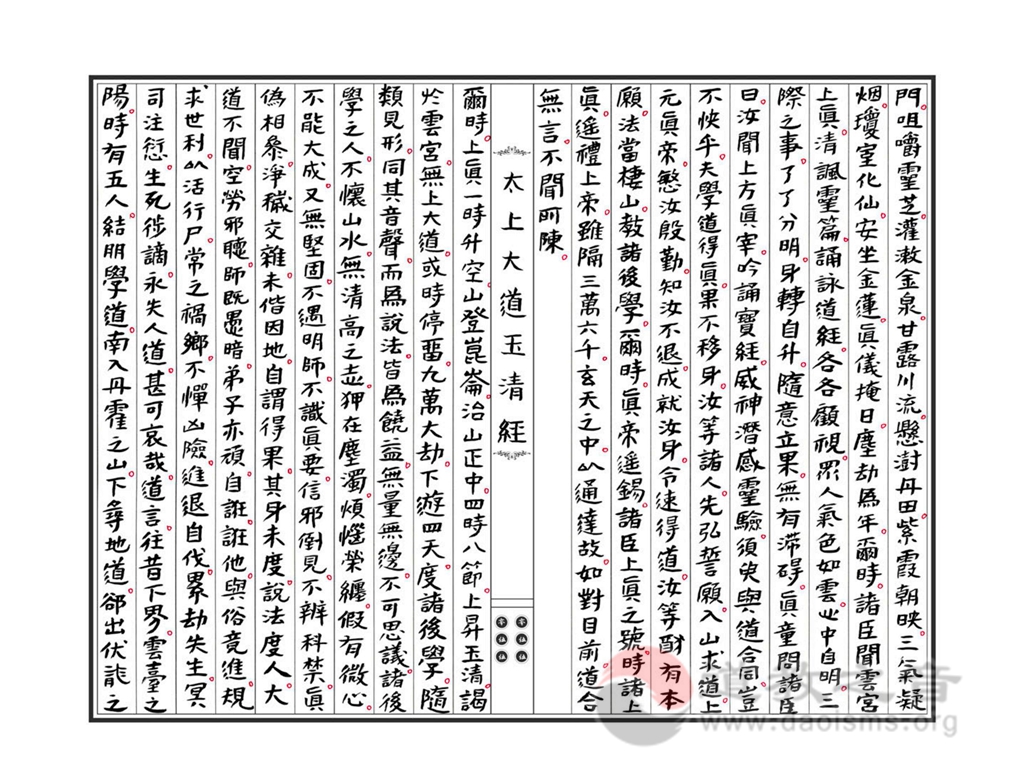 門咀嚼靈芝灌漱金泉甘露川流懸澍丹田紫霞朝映三炁凝
烟瓊室化仙安坐金蓮眞儀掩日塵劫爲年爾時諸臣聞雲宮
上眞清諷靈篇誦詠道經各各顧視眾人氣色如雲心中自明三
際之事了了分明身轉自升隨意立果無有滯碍眞童問諸臣
曰汝聞上方眞宰吟誦寶經威神潛感靈驗須臾與道合同豈
不快乎夫學道得眞果不移身汝等諸人先弘誓願入山求道上
元眞帝愍汝殷勤知汝不退成就汝身令速得道汝等酧有本
願法當棲山教諸後學爾時眞帝遥錫諸臣上眞之號時諸上
眞遥禮上帝雖隔三萬六千玄天之中以通達故如對目前道合
無言不聞所陳
太上大道玉清經
爾時上眞一時升空山登崑崙治山正中四時八節上昇玉清謁
於雲宮無上大道或時停畱九萬大劫下遊四天度諸後學隨
類見形同其音聲而爲說法皆爲饒益無量無邊不可思議諸後
學之人不懷山水無清高之志狎在塵濁煩惱榮纏假有微心
不能大成又無堅固不遇明師不識眞要信邪倒見不辨科禁眞
偽相叅淨穢交雜未偕因地自謂得果其身未度說法度人大
道不聞空勞邪聽師旣愚暗弟子亦頑自誑誑他與俗竟進規
求世利以活行尸常之禍鄉不憚凶險進退自伐累劫失生冥
司注愆生死徙謫永失人道甚可哀哉道言往昔下界雲臺之
陽時有五人結朋學道南入丹霍之山下尋地道郤出伏龍之
道教之音
www.daoisms.org